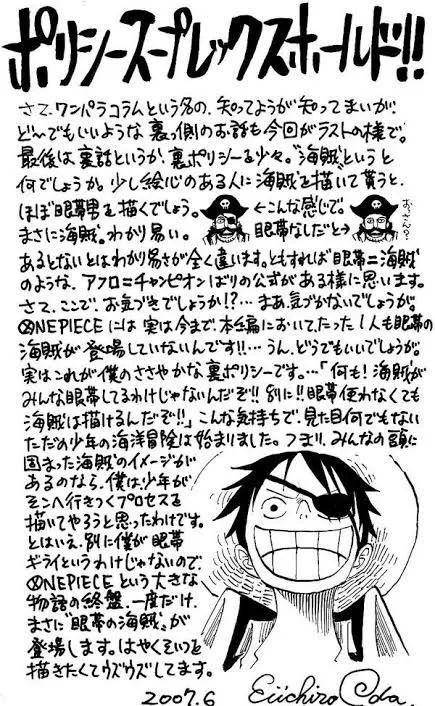 ポリシースープレックスホールド!!
さて、ワンパラコラムという名の、知ってようが知ってまいが、
ど〜でもいいような裏側のお話も今回がラストの様で。
最後は裏話というか、裏ポリシーを少々。"海賊"というと
何でしょうか。少し絵心のある人に"海賊"を描いて貰うと、
ほぼ眼帯男を描くでしょう。 ←こんな感じで。 おっさん?
まさに海賊。わかり易い。 眼帯なしだと→
あるとないとはわかり易さが全く違います。ともすれば"眼帯=海賊"
のような、アフロ=チャンピオンばりの公式がある様に思います。
さて、ここで、お気づきでしょうか!?…まあ気づかないでしょうが。
ONEPIECEには実は今まで、本編において、たった1人も眼帯の
海賊が登場していないんです!!…うん、どうでもいいでしょうが。
実はこれが僕のささやかな裏ポリシーです。…「何も!海賊が
みんな眼帯してるわけじゃないんだぞ!!別に!!眼帯使わなくても
海賊は描けるんだぞ!!」こんな気持ちで、見た目何でもない
ただの少年の海洋冒険は始まりました。つまり、みんなの頭に
固まった海賊のイメージが
あるのなら、僕は少年が
そこへ行きつくプロセスを
描いてやろうと思ったわけです。
とはいえ、別に僕が眼帯
ギライというわけじゃないので、
ONEPIECEという大きな
物語の終盤、一度だけ、
まさに"眼帯の海賊"が
登場します。はやくそいつを
描きたくてウズウズしてます。
2007.6 Eiichiro Oda